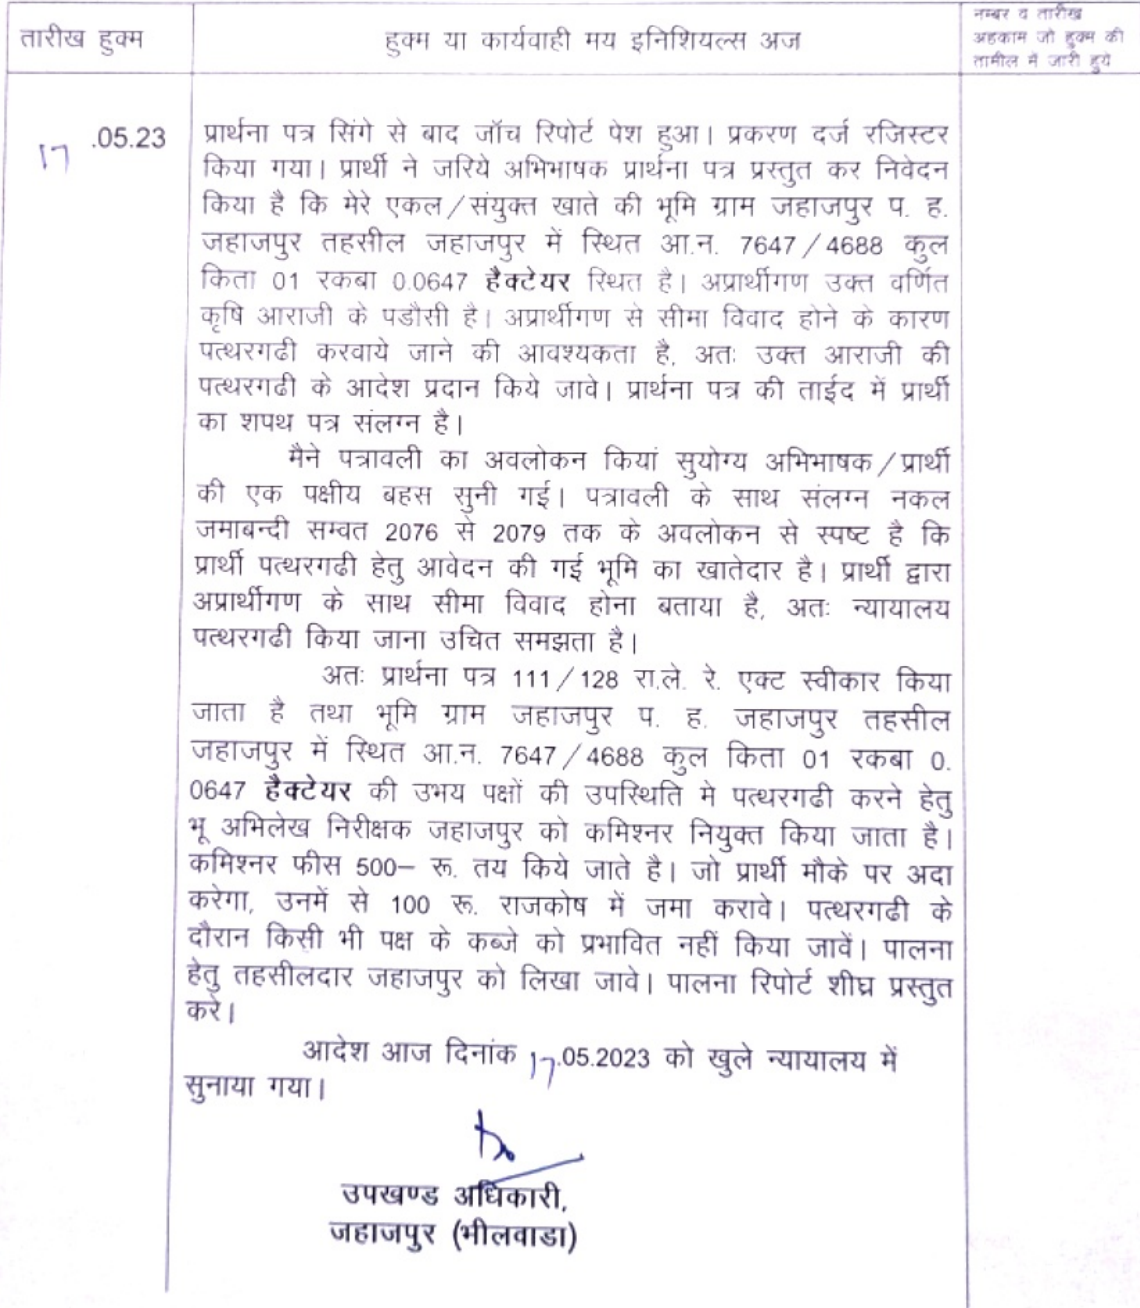 तारीख हुक्म
हुक्म या कार्यवाही मय इनिशियल्स अज
नम्बर व तारीख
अहकाम जो हुक्म की
तामील में जारी हुये
17 .05.23
प्रार्थना पत्र सिंगे से बाद जॉच रिपोर्ट पेश हुआ। प्रकरण दर्ज रजिस्टर
किया गया। प्रार्थी ने जरिये अभिभाषक प्रार्थना पत्र प्रस्तुत कर निवेदन
किया है कि मेरे एकल/संयुक्त खाते की भूमि ग्राम जहाजपुर प. ह.
जहाजपुर तहसील जहाजपुर में स्थित आ.न. 7647/4688 कुल
किता 01 रकबा 0.0647 हैक्टेयर स्थित है। अप्रार्थीगण उक्त वर्णित
कृषि आराजी के पडौसी है। अप्रार्थीगण से सीमा विवाद होने के कारण
पत्थरगढी करवाये जाने की आवश्यकता है, अतः उक्त आराजी की
पत्थरगढी के आदेश प्रदान किये जावे। प्रार्थना पत्र की ताईद में प्रार्थी
का शपथ पत्र संलग्न है।
मैने पत्रावली का अवलोकन कियां सुयोग्य अभिभाषक/प्रार्थी
की एक पक्षीय बहस सुनी गई। पत्रावली के साथ संलग्न नकल
जमाबन्दी सम्वत 2076 से 2079 तक के अवलोकन से स्पष्ट है कि
प्रार्थी पत्थरगढी हेतु आवेदन की गई भूमि का खातेदार है। प्रार्थी द्वारा
अप्रार्थीगण के साथ सीमा विवाद होना बताया है, अतः न्यायालय
पत्थरगढी किया जाना उचित समझता है।
अतः प्रार्थना पत्र 111/128 रा.ले. रे. एक्ट स्वीकार किया
जाता है तथा भूमि ग्राम जहाजपुर प. ह. जहाजपुर तहसील
जहाजपुर में स्थित आ.न. 7647/4688 कुल किता 01 रकबा 0.
0647 हैक्टेयर की उभय पक्षों की उपस्थिति मे पत्थरगढी करने हेतु
भू अभिलेख निरीक्षक जहाजपुर को कमिश्नर नियुक्त किया जाता है।
कमिश्नर फीस 500– रू. तय किये जाते है। जो प्रार्थी मौके पर अदा
करेगा, उनमें से 100 रू. राजकोष में जमा करावे। पत्थरगढी के
दौरान किसी भी पक्ष के कब्जे को प्रभावित नहीं किया जावें। पालना
हेतु तहसीलदार जहाजपुर को लिखा जावे। पालना रिपोर्ट शीघ्र प्रस्तुत
करे।
आदेश आज दिनांक 17.05.2023 को खुले न्यायालय में
सुनाया गया।
उपखण्ड अधिकारी,
जहाजपुर (भीलवाडा)